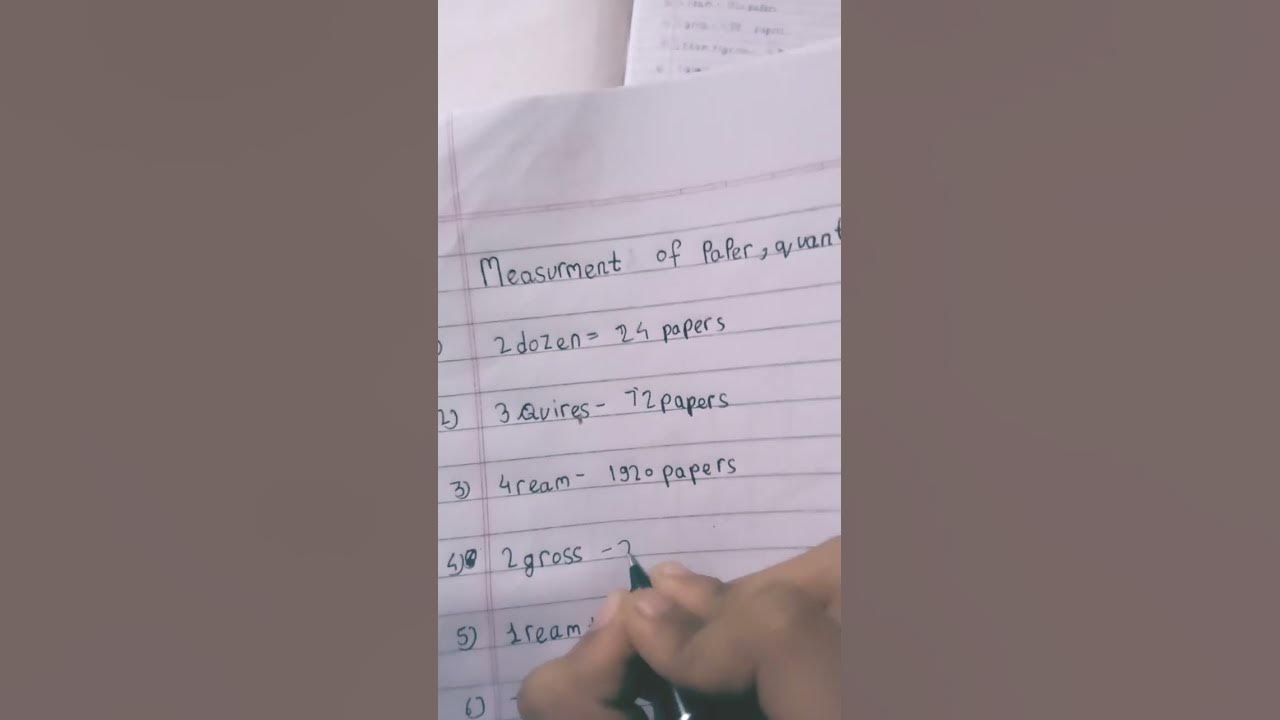 Measurment of Paper, quant
2 dozen = 24 papers
2) 3 Quires - 72 papers
3) 4 ream - 1920 papers
4) 2 gross - 2
5) 1 ream
6)